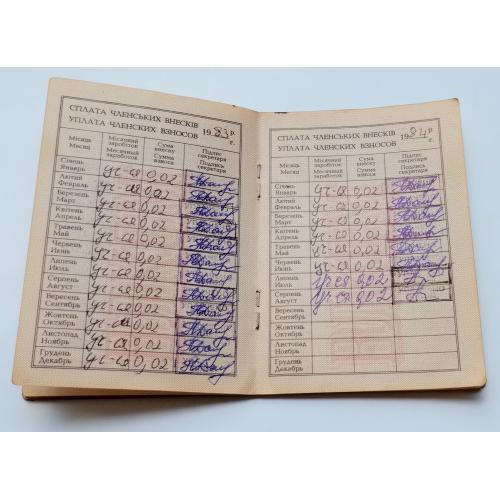 СПЛАТА ЧЛЕНСЬКИХ ВНЕСКІВ
УПЛАТА ЧЛЕНСКИХ ВЗНОСОВ 1983 р. г.
Місяць Місячний заробіток Сума внеску Підпис секретаря
Месяц Месячный заработок Сумма взноса Подпись секретаря
Січень
Январь уч-ся 0,02
Лютий
Февраль уч-ся 0,02
Березень
Март уч-ся 0,02
Квітень
Апрель уч-ся 0,02
Травень
Май уч-ся 0,02
Червень
Июнь уч-ся 0,02
Липень
Июль уч-ся 0,02
Серпень
Август уч-ся 0,02
Вересень
Сентябрь уч-ся 0,02
Жовтень
Октябрь уч-ся 0,02
Листопад
Ноябрь уч-ся 0,02
Грудень
Декабрь уч-ся 0,02
СПЛАТА ЧЛЕНСЬКИХ ВНЕСКІВ
УПЛАТА ЧЛЕНСКИХ ВЗНОСОВ 1984 р. г.
Місяць Місячний заробіток Сума внеску Підпис секретаря
Месяц Месячный заработок Сумма взноса Подпись секретаря
Січень
Январь уч-ся 0,02
Лютий
Февраль уч-ся 0,02
Березень
Март уч-ся 0,02
Квітень
Апрель уч-ся 0,02
Травень
Май уч-ся 0,02
Червень
Июнь уч-ся 0,02
Липень
Июль уч-ся 0,02
Серпень
Август уч-ся 0,02
Вересень
Сентябрь
Жовтень
Октябрь
Листопад
Ноябрь
Грудень
Декабрь